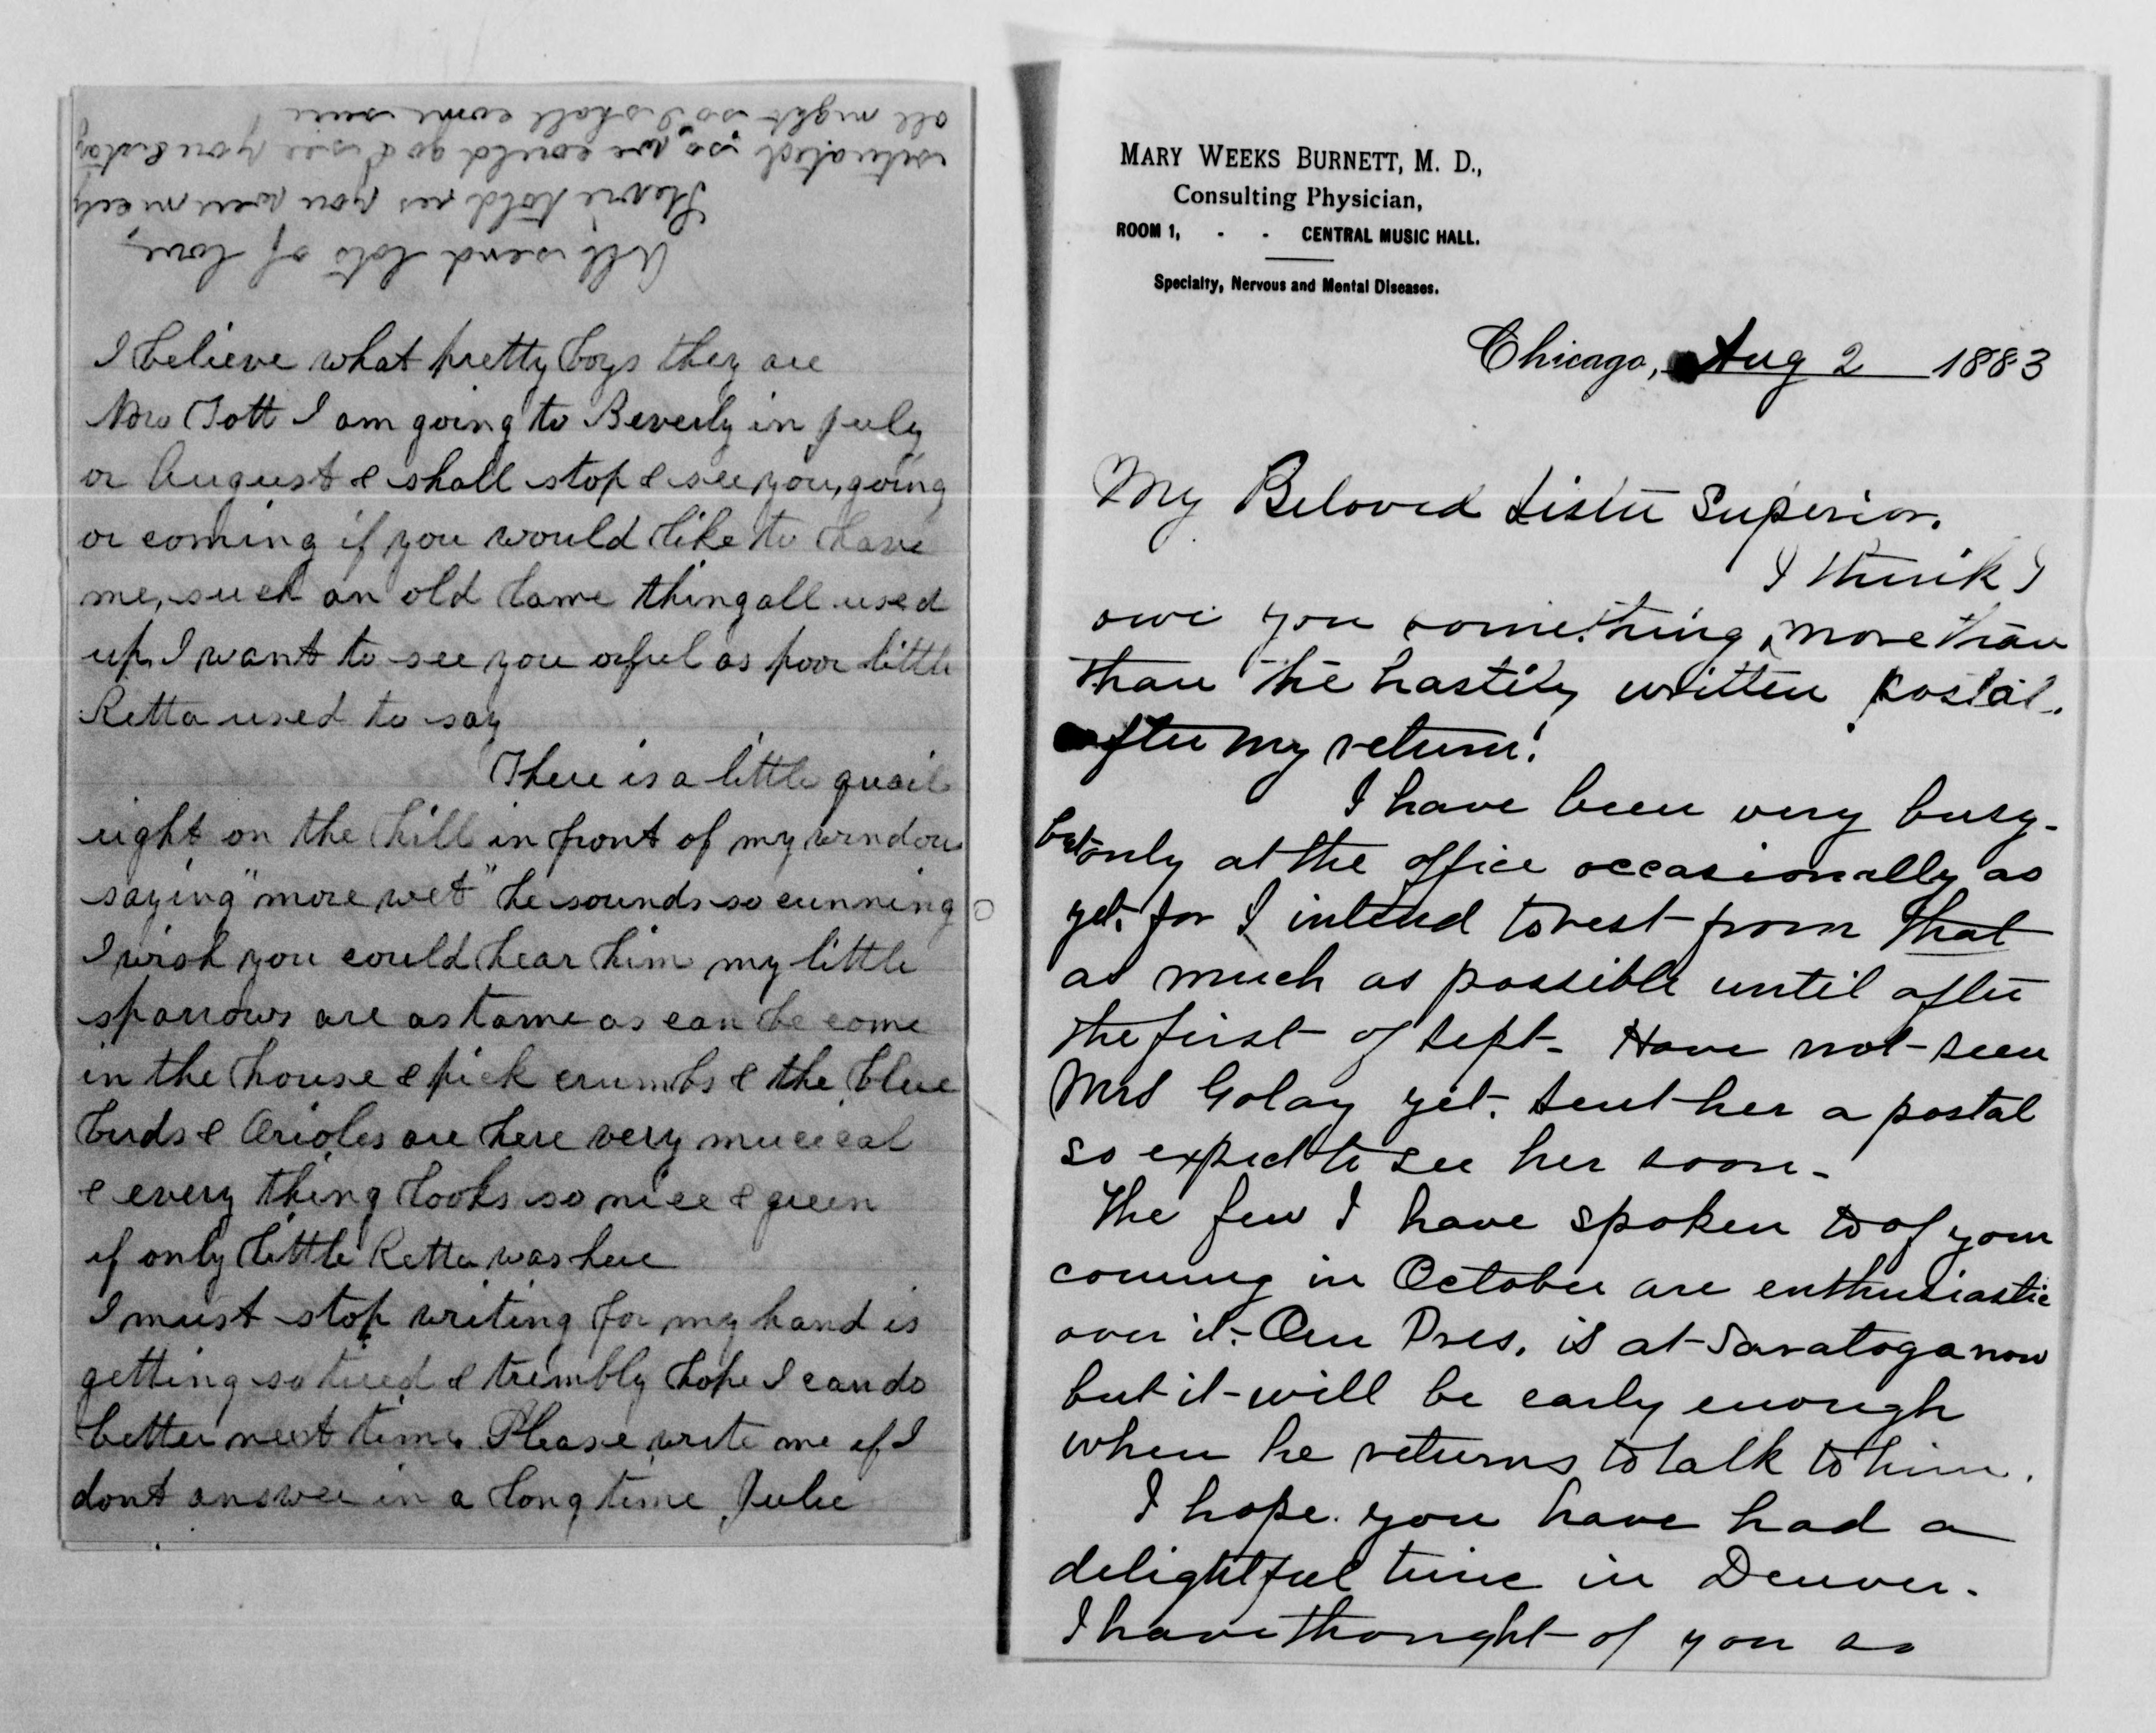 I believe what pretty boys they are
Mrs Tott I am going to Beverly in july
or August & shall stop & see you, going
or coming if you would like to have
me, such an old lame thing all used
up, I want to see you orful as poor little
Retta used to say
There is a little quail
right on the hill in front of my window
saying "more wet" he sounds so cunning
I wish you could hear him my little
sparrows are as tame as can be come
in the house & pick crumbs & the blue
birds & Orioles are here very mucical
& every thing looks so nice & green
if only little Retta was here
I must stop writing for my hand is
getting so tired & trembly hope I can do
better next time, Please write me if I
dont answer in a long time Julie
All send lots of love,
told us you were nicely
situated so we could go & see you & stay
all night so I shall come sure
MARY WEEKS BURNETT, M. D.,
Consulting Physician,
ROOM 1, - - CENTRAL MUSIC HALL.
Specialty, Nervous and Mental Diseases.
Chicago, Aug 2 1883
My Beloved Sister Superior.
I think I
owe you something, more than
than the hastily written postal.
after my return!
I have been very busy-
but only at the office occasionally as
yet, for I intend to rest from that
as much as possible until after
the first of Sept- Have not seen
Mrs Golay yet. Sent her a postal
so expect to see her soon-
The few I have spoken to of your
coming in October are enthusiastic
over it- Our Pres. is at Saratoga now
but it will be early enough
when he returns to talk to him.
I hope you have had a
delightful time in Denver.
I have thought of you as